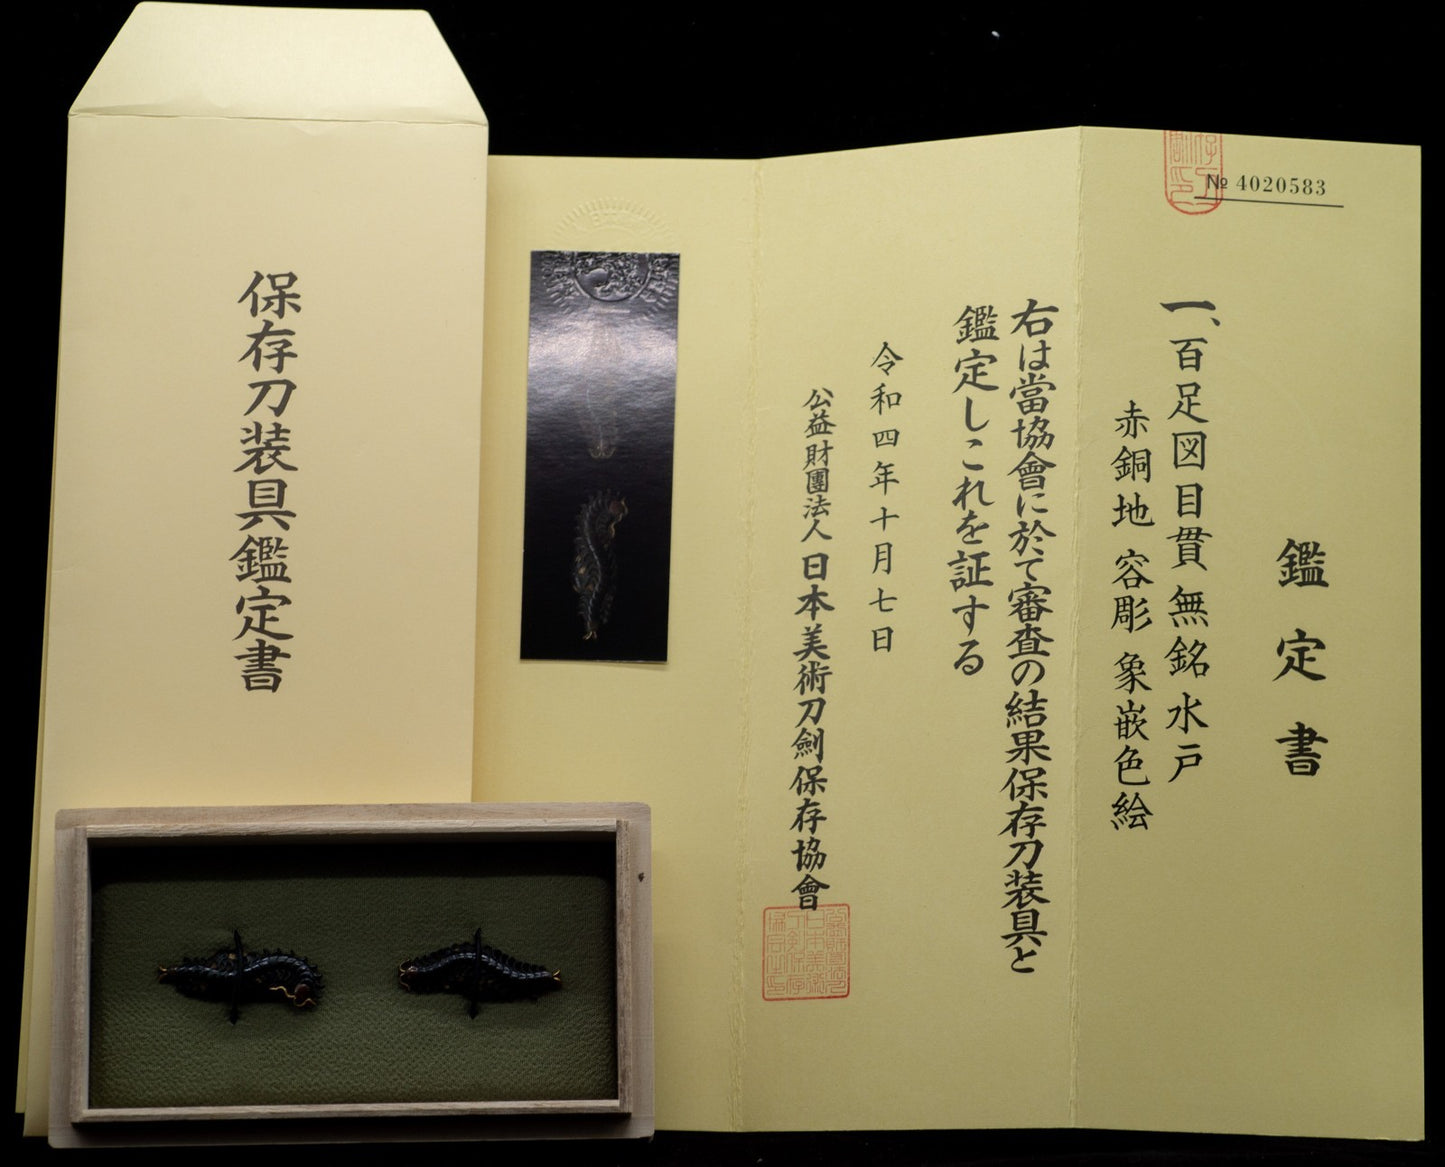 保存刀装具鑑定書
№ 4020583
鑑定書
一、百足図目貫 無銘 水戸
赤銅地 容彫 象嵌色絵
右は當協會に於て審査の結果保存刀装具と
鑑定しこれを証する
令和四年十月七日
公益財團法人 日本美術刀劍保存協會